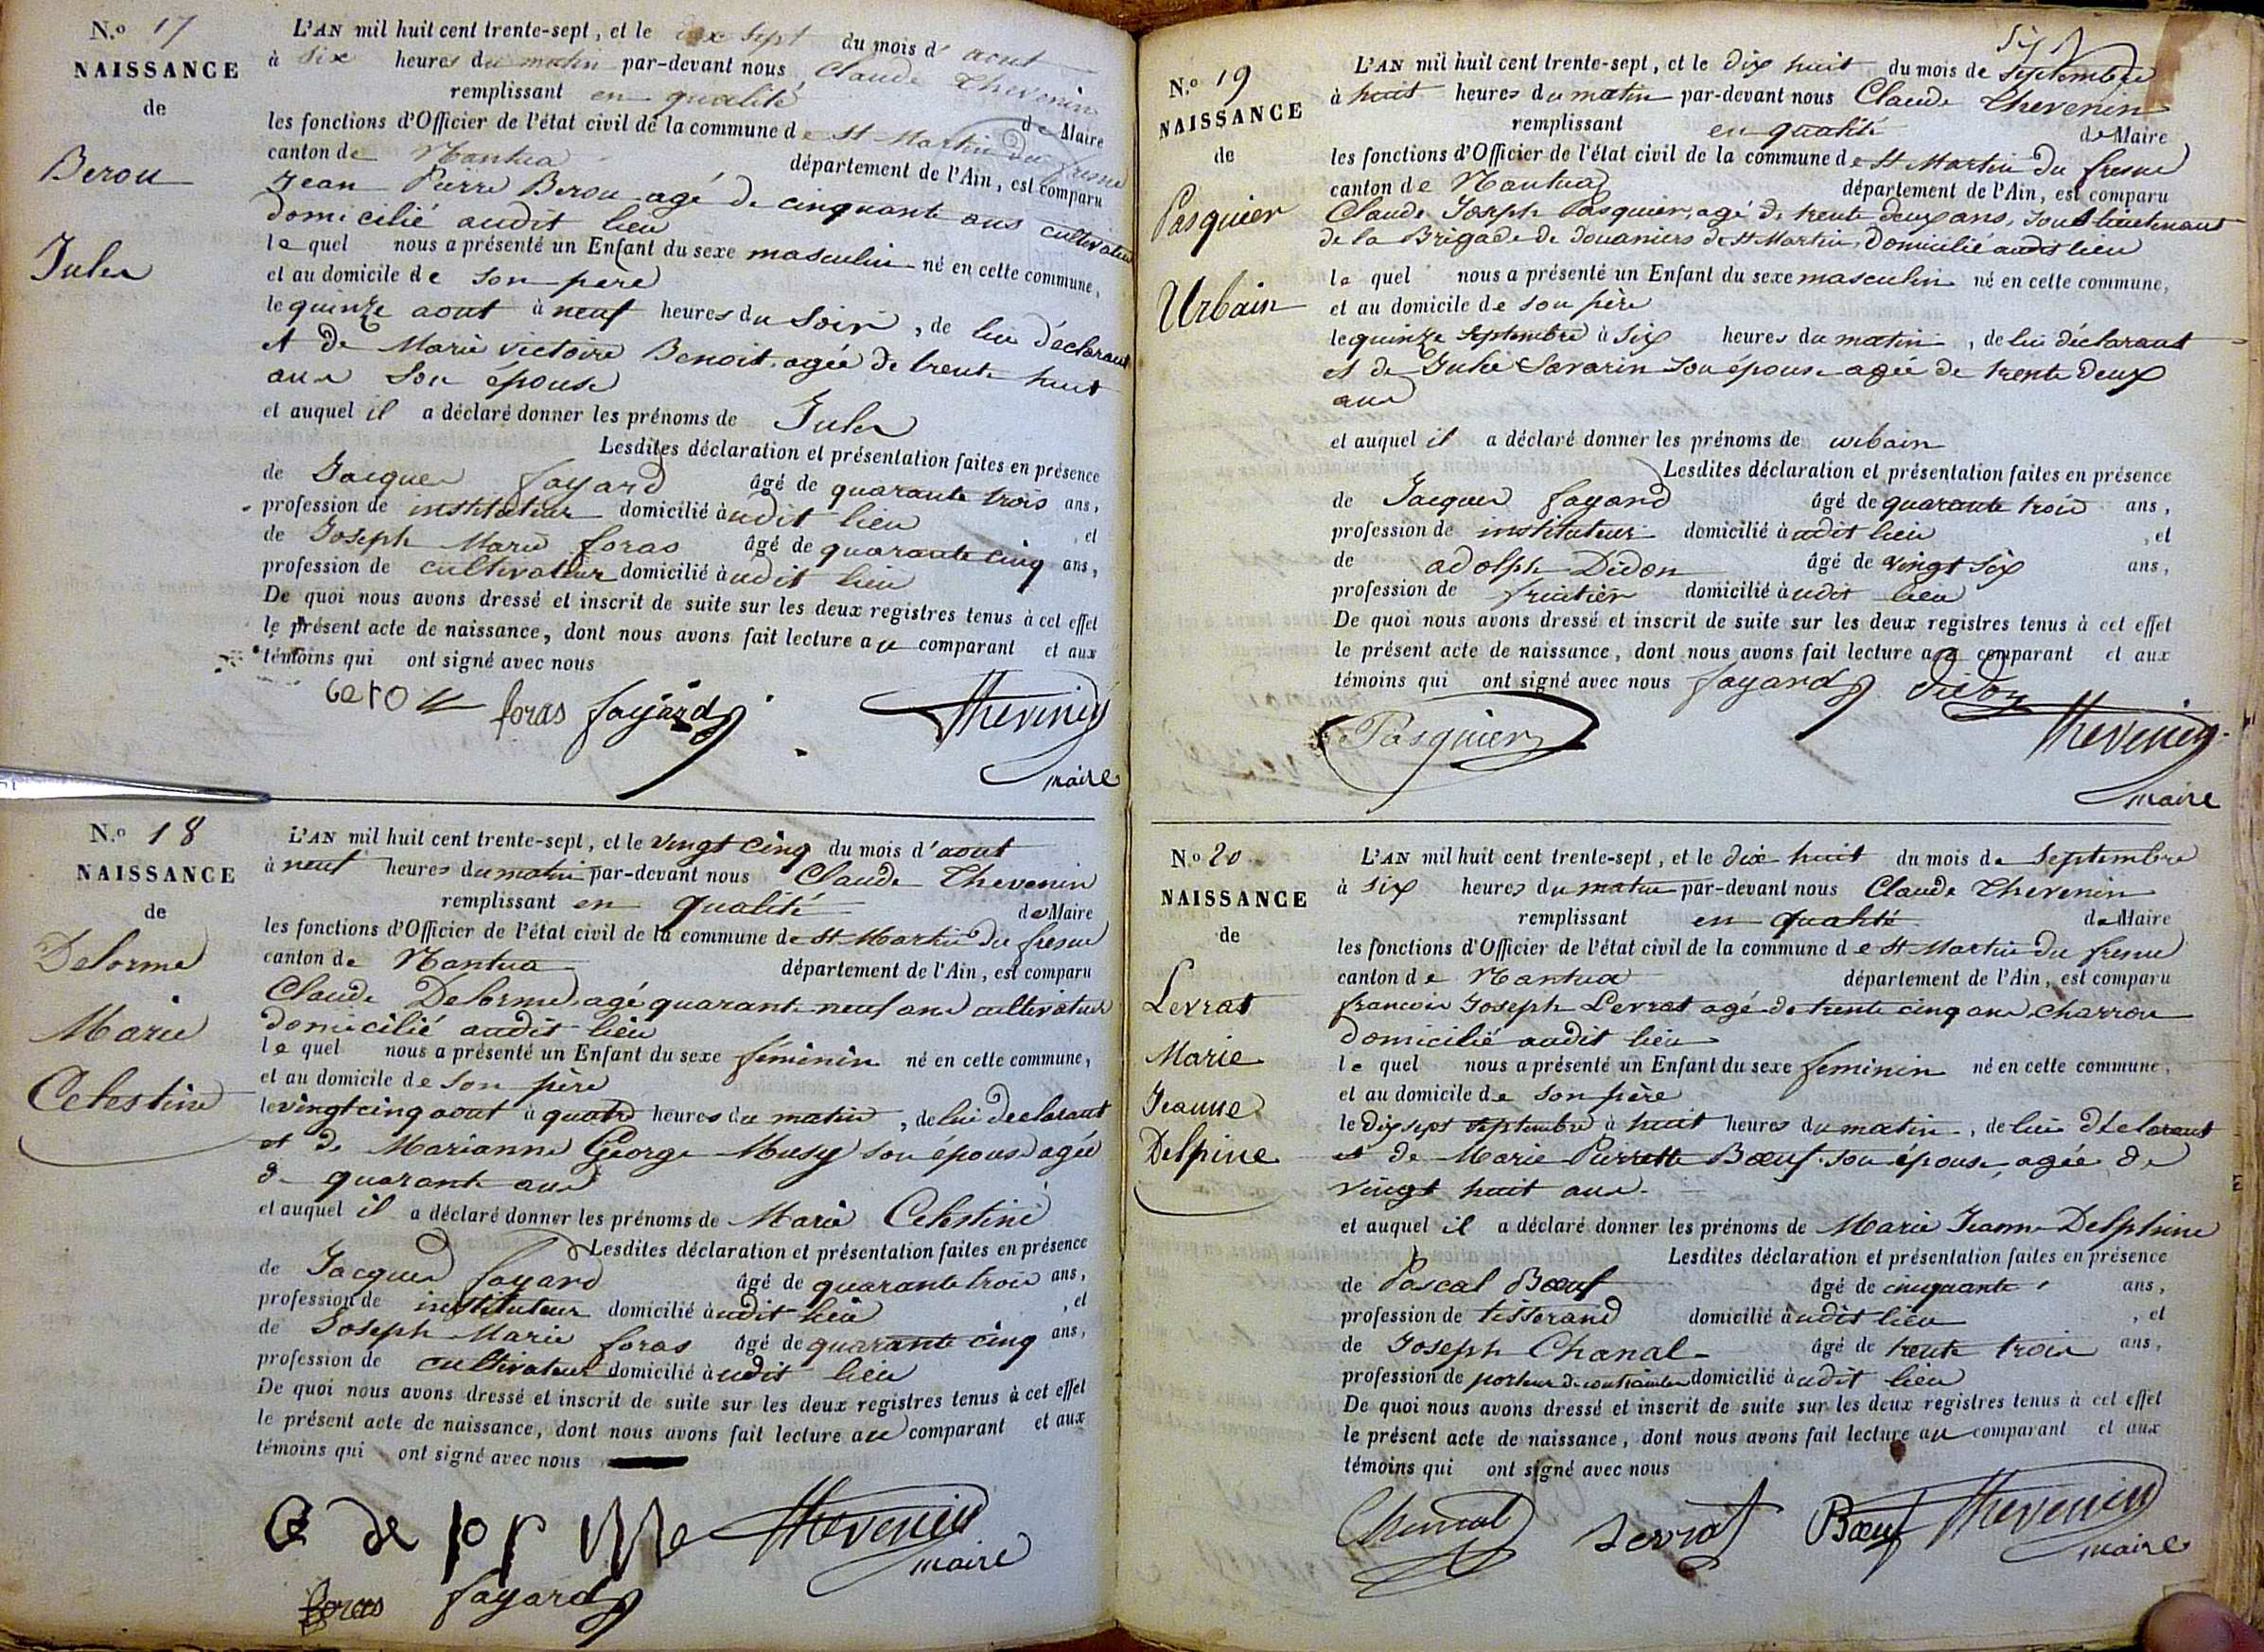 N.o 17
NAISSANCE
de
Berou
Jules
L'AN mil huit cent trente-sept, et le dix sept du mois d'aout
à Six heures du matin par-devant nous Claude Thevenin
remplissant en qualité de Maire
les fonctions d'Officier de l'état civil de la commune de St Martin du fresne
canton de Nantua département de l'Ain, est comparu
Jean Pierre Berou agé de cinquante ans cultivateur
domicilié audit lieu
lequel nous a présenté un Enfant du sexe masculin né en cette commune,
et au domicile de son père
le quinze aout à neuf heures du Soir, de lui déclarant
et de Marie victoire Benoit, agée de trente huit
ans Son épouse
et auquel il a déclaré donner les prénoms de Jules
Lesdites déclaration et présentation faites en présence
de Jacques fayard âgé de quarante trois ans,
profession de instituteur domicilié audit lieu, et
de Joseph Marie foras âgé de quarante cinq ans,
profession de cultivateur domicilié audit lieu
De quoi nous avons dressé et inscrit de suite sur les deux registres tenus à cet effet
le présent acte de naissance, dont nous avons fait lecture au comparant et aux
témoins qui ont signé avec nous
foras fayard Thevenin
maire
N.o 18
NAISSANCE
de
Delorme
Marie
Celestine
L'AN mil huit cent trente-sept, et le vingt cinq du mois d'aout
à neuf heures du matin par-devant nous Claude Thevenin
remplissant en qualité de Maire
les fonctions d'Officier de l'état civil de la commune de St Martin du fresne
canton de Nantua département de l'Ain, est comparu
Claude Delorme agé quarante neuf ans cultivateur
domicilié audit lieu
lequel nous a présenté un Enfant du sexe féminin né en cette commune,
et au domicile de son père
le vingt cinq aout à quatre heures du matin, de lui declarant
et de Marianne George Musy son épouse agée
de quarante ans
et auquel il a déclaré donner les prénoms de Marie Celestine
Lesdites déclaration et présentation faites en présence
de Jacques fayard âgé de quarante trois ans,
profession de instituteur domicilié audit lieu, et
de Joseph Marie foras âgé de quarante cinq ans,
profession de cultivateur domicilié audit lieu
De quoi nous avons dressé et inscrit de suite sur les deux registres tenus à cet effet
le présent acte de naissance, dont nous avons fait lecture au comparant et aux
témoins qui ont signé avec nous
Thevenin
maire
foras fayard
N.o 19
NAISSANCE
de
Pasquier
Urbain
L'AN mil huit cent trente-sept, et le dix huit du mois de Septembre
à huit heures du matin par-devant nous Claude Thevenin
remplissant en qualité de Maire
les fonctions d'Officier de l'état civil de la commune de St Martin du fresne
canton de Nantua département de l'Ain, est comparu
Claude Joseph Pasquier, agé de trente deux ans, Sous lieutenant
de la Brigade de Douaniers de St Martin, Domicilié audit lieu
lequel nous a présenté un Enfant du sexe masculin né en cette commune,
et au domicile de son père
le quinze Septembre à Six heures du matin, de lui déclarant
et de Julie Savarin Son épouse agée de trente deux
ans
et auquel il a déclaré donner les prénoms de urbain
Lesdites déclaration et présentation faites en présence
de Jacques fayard âgé de quarante trois ans,
profession de instituteur domicilié audit lieu, et
de adolph Didon âgé de vingt Six ans,
profession de fruitier domicilié audit lieu
De quoi nous avons dressé et inscrit de suite sur les deux registres tenus à cet effet
le présent acte de naissance, dont nous avons fait lecture au comparant et aux
témoins qui ont signé avec nous fayard Didon
Pasquier Thevenin
maire
N.o 20
NAISSANCE
de
Levrat
Marie
Jeanne
Delpine
L'AN mil huit cent trente-sept, et le dix huit du mois de Septembre
à Six heures du matin par-devant nous Claude Thevenin
remplissant en qualité de Maire
les fonctions d'Officier de l'état civil de la commune de St Martin du fresne
canton de Nantua département de l'Ain, est comparu
francois Joseph Levrat agé de trente cinq ans Charron
domicilié audit lieu
lequel nous a présenté un Enfant du sexe feminin né en cette commune,
et au domicile de Son père
le Dix sept septembre à huit heures du matin, de lui déclarant
et de Marie Pierrette Bœuf son épouse, agée de
vingt huit ans
et auquel il a déclaré donner les prénoms de Marie Jeanne Delphine
Lesdites déclaration et présentation faites en présence
de Pascal Bœuf âgé de cinquante ans,
profession de tisserand domicilié audit lieu, et
de Joseph Chanal âgé de trente trois ans,
profession de porteur de contraintes domicilié audit lieu
De quoi nous avons dressé et inscrit de suite sur les deux registres tenus à cet effet
le présent acte de naissance, dont nous avons fait lecture au comparant et aux
témoins qui ont signé avec nous
Chanal Levrat Bœuf Thevenin
maire